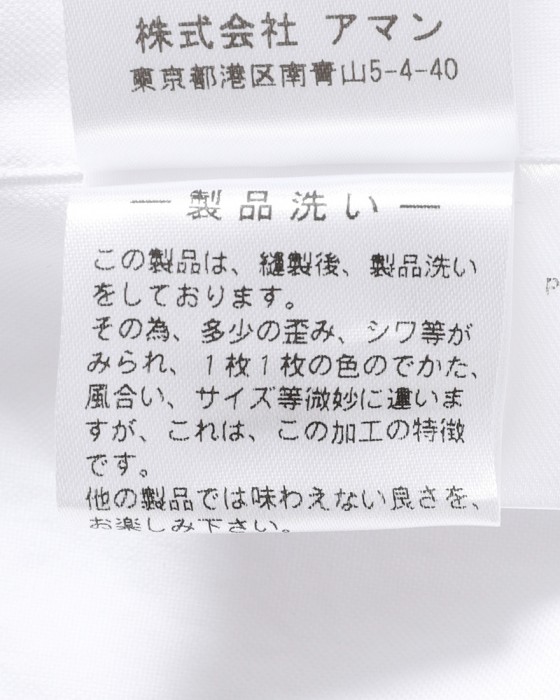 株式会社 アマン
東京都港区南青山5-4-40
―製品洗い―
この製品は、縫製後、製品洗い
をしております。
その為、多少の歪み、シワ等が
みられ、1枚1枚の色のでかた、
風合い、サイズ等微妙に違いま
すが、これは、この加工の特徴
です。
他の製品では味わえない良さを、
お楽しみ下さい。
p